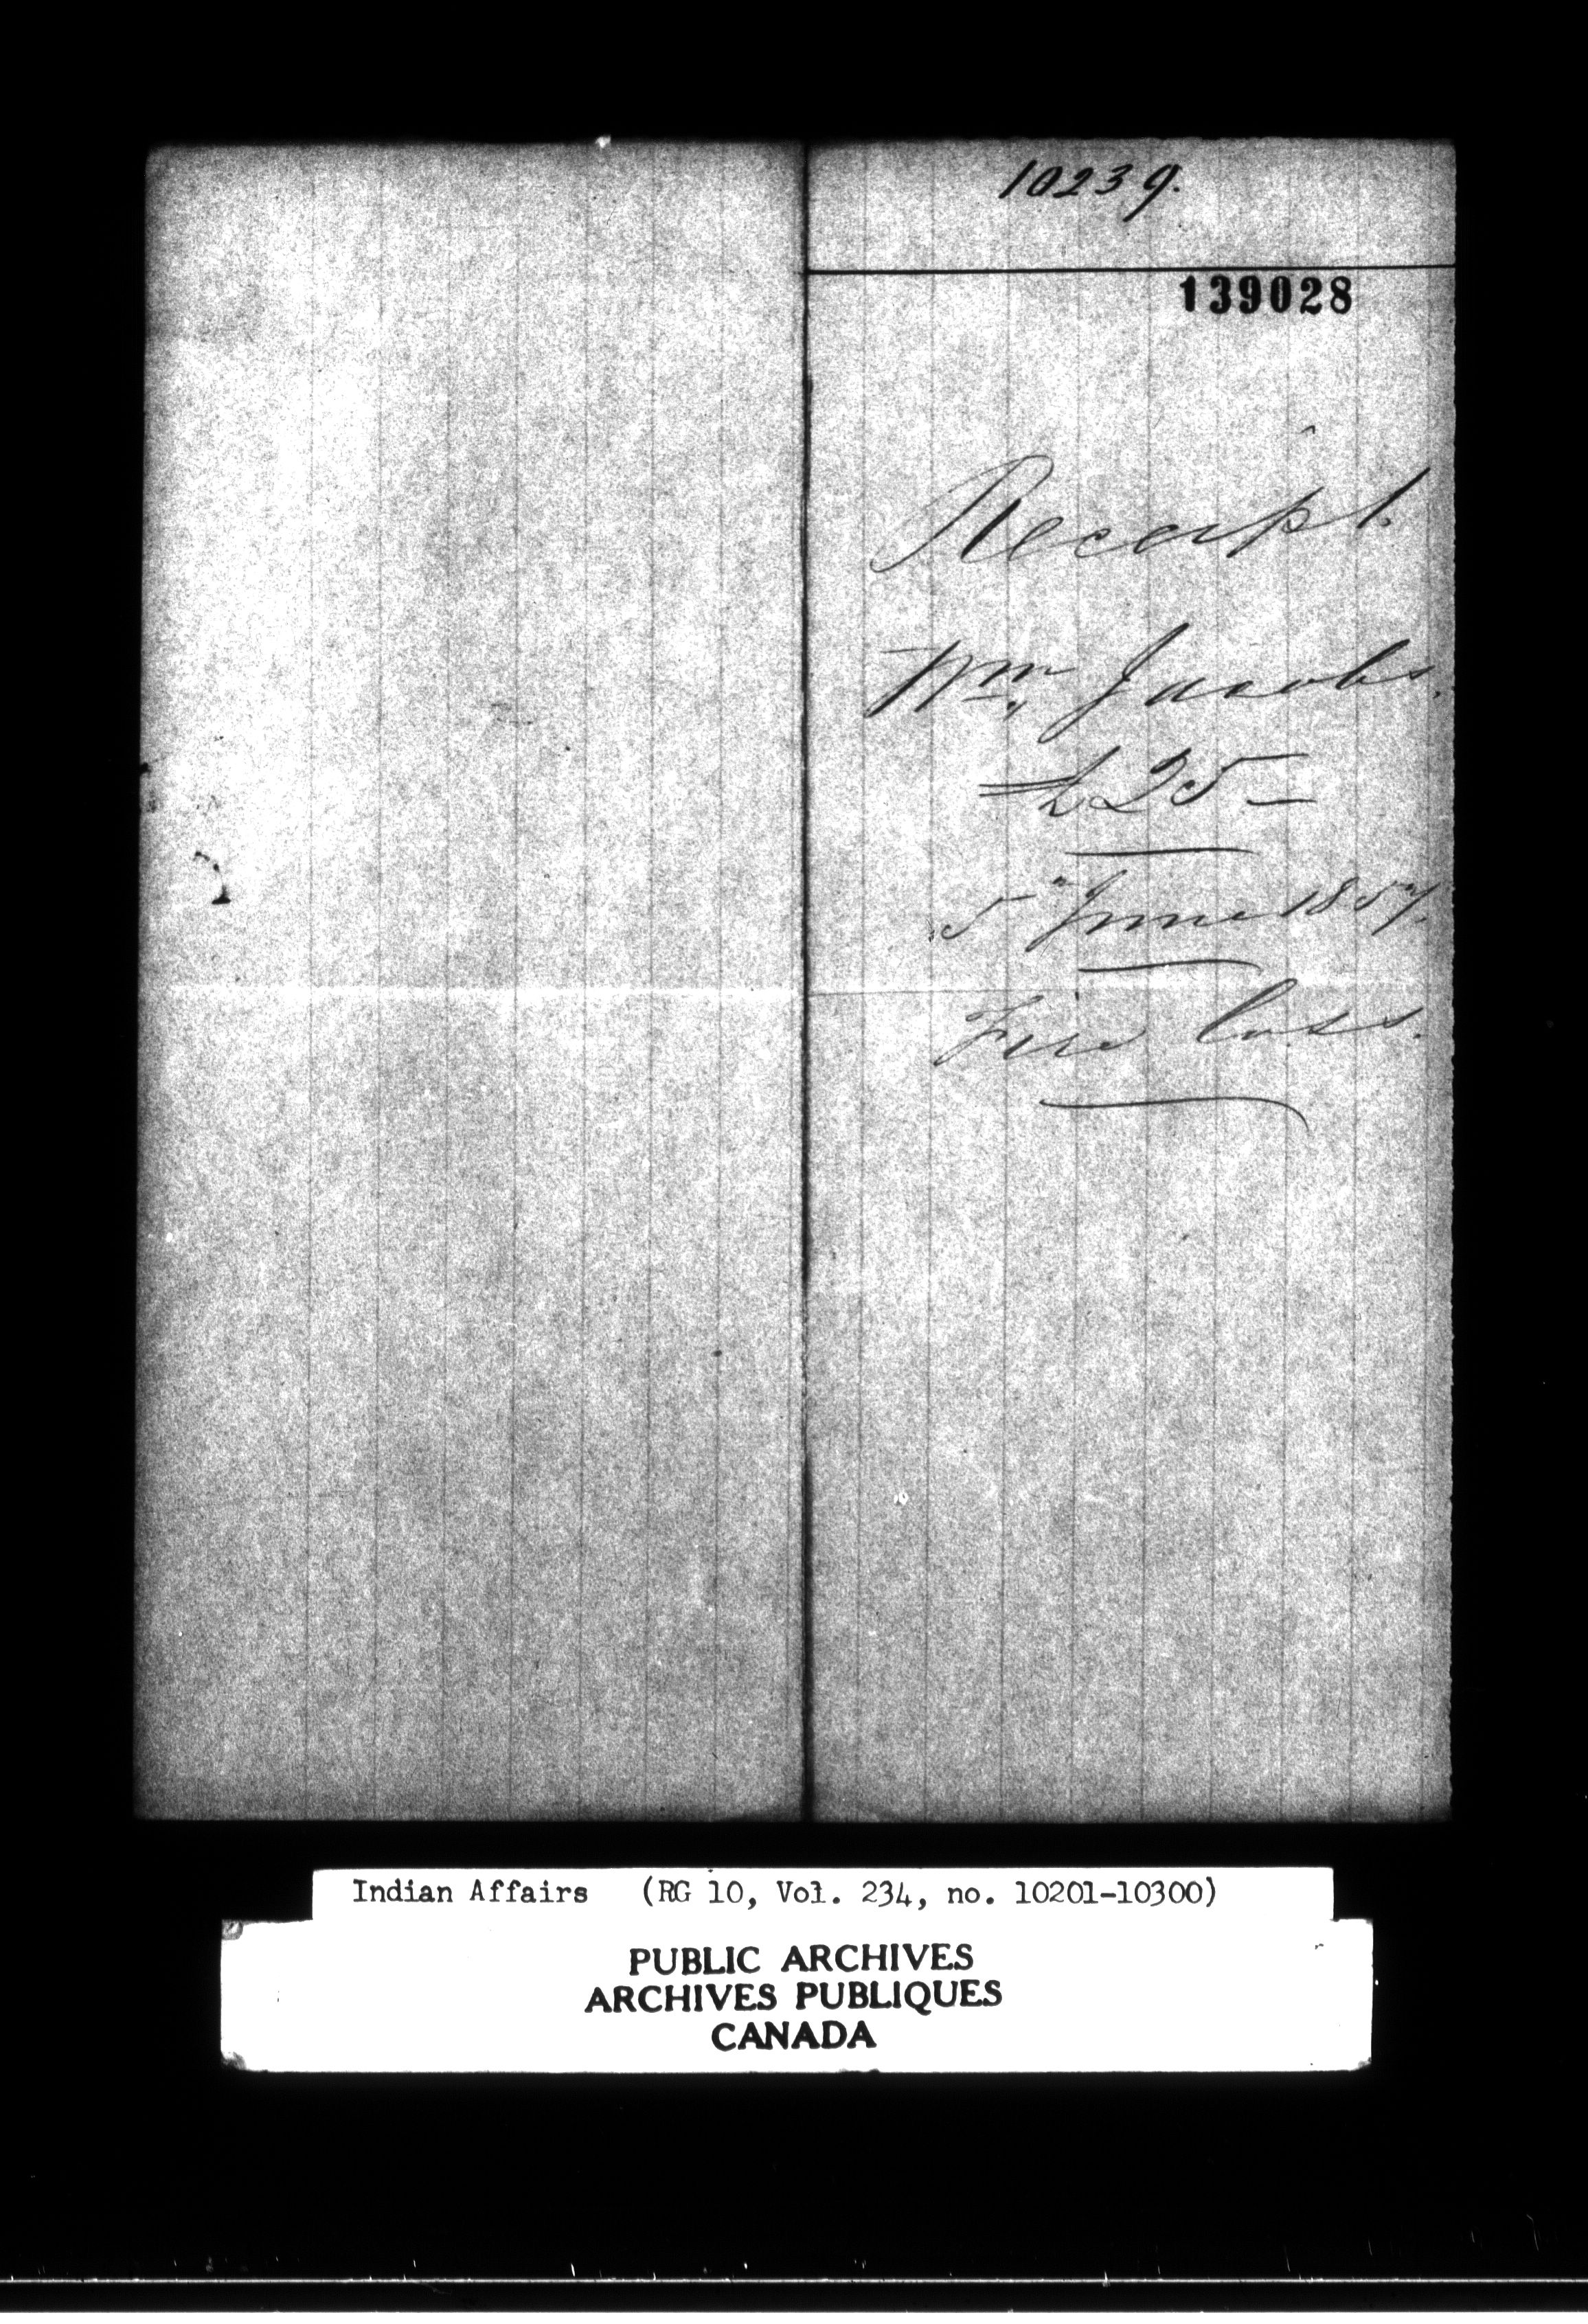 10239.
139028
Receipt.
Wm. Jacobs.
£25 =
5" June 1857.
Fire loss.
Indian Affairs (RG 10, Vol. 234, no. 10201-10300)
PUBLIC ARCHIVES
ARCHIVES PUBLIQUES
CANADA